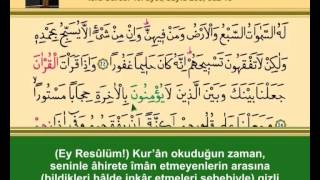 لَهُ السَّمٰوَاتُ السَّبْعُ وَالْاَرْضُ وَمَنْ فٖيهِنَّ وَاِنْ مِنْ شَيْءٍ اِلَّا يُسَبِّحُ بِحَمْدِهٖ
وَلٰكِنْ لَا تَفْقَهُونَ تَسْبٖيحَهُمْ اِنَّهُ كَانَ حَلٖيمًا غَفُورًا وَاِذَا قَرَأْتَ الْقُرْاٰنَ
جَعَلْنَا بَيْنَكَ وَبَيْنَ الَّذٖينَ لَا يُؤْمِنُونَ بِالْاٰخِرَةِ حِجَابًا مَسْتُورًا
(Ey Resûlüm!) Kur'ân okuduğun zaman,
seninle âhirete îmân etmeyenlerin arasına
(bildikleri hâlde inkâr etmeleri sebebiyle) gizli